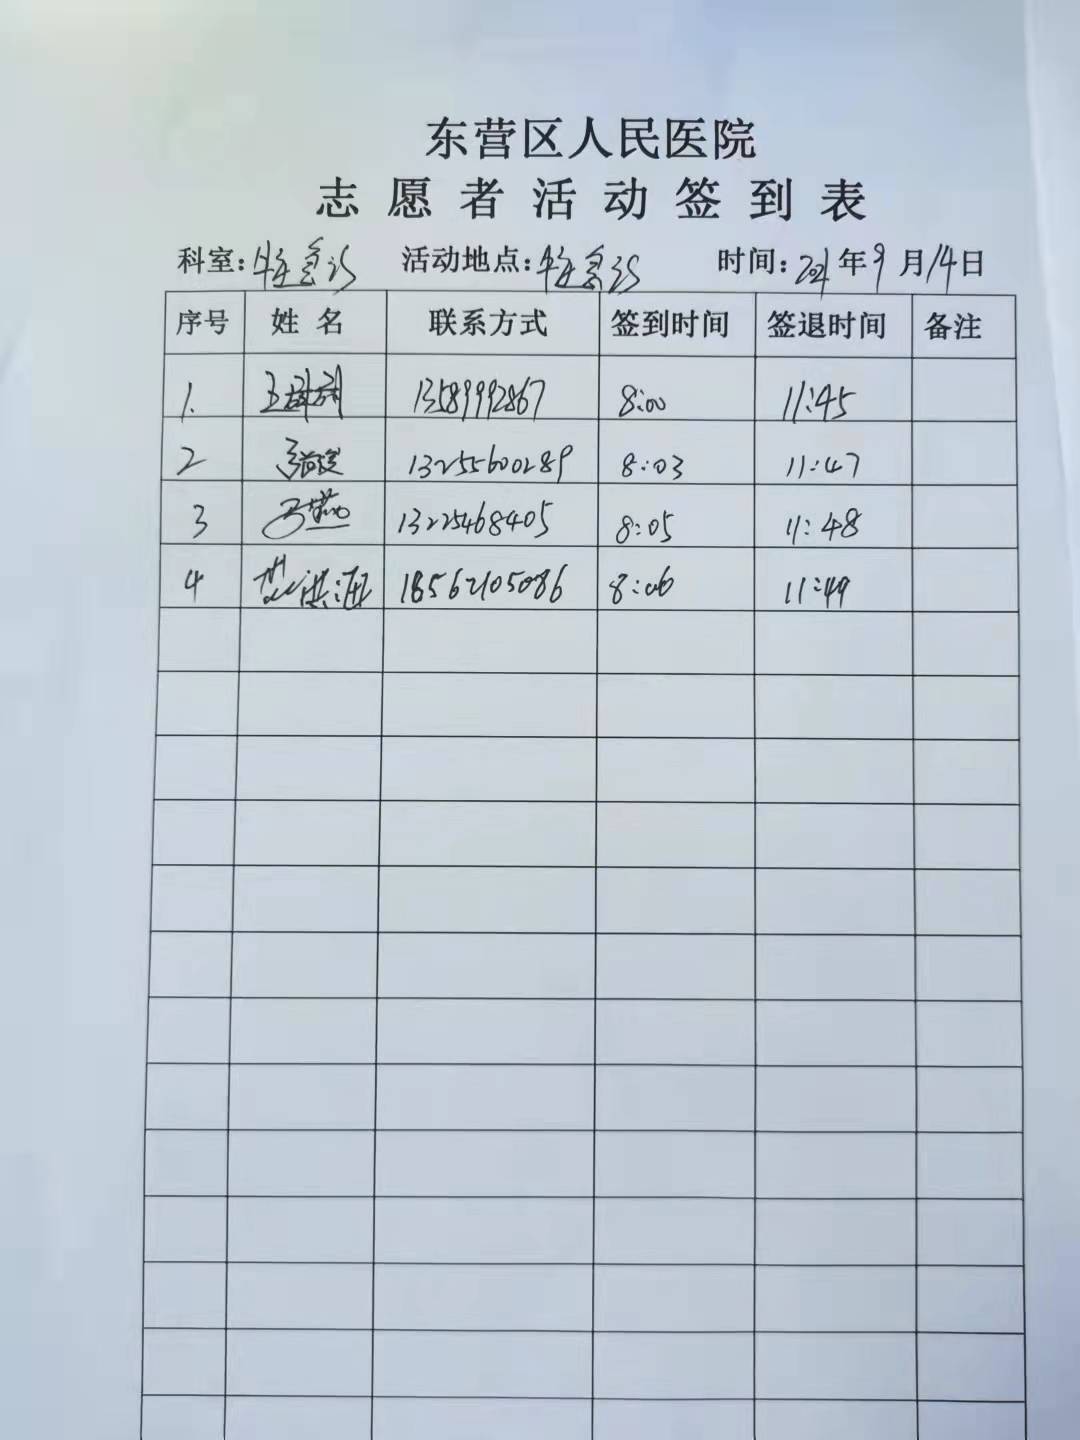 东营区人民医院
志愿者活动签到表
科室: 活动地点: 时间:2021年9月14日
序号 姓名 联系方式 签到时间 签退时间 备注
1. 13589992867 8:00 11:45
2 13255600289 8:03 11:47
3 马燕 13225468405 8:05 11:48
4 洪海 18562105086 8:06 11:49